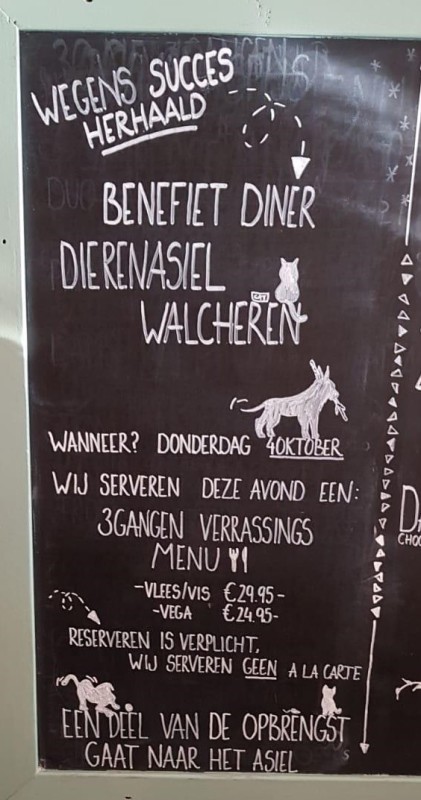 WEGENS SUCCES
HERHAALD
BENEFIET DINER
DIERENASIEL
CAT
WALCHEREN
WANNEER? DONDERDAG 4OKTOBER
WIJ SERVEREN DEZE AVOND EEN:
3GANGEN VERRASSINGS
MENU
-VLEES/VIS €29.95-
-VEGA €24.95-
RESERVEREN IS VERPLICHT,
WIJ SERVEREN GEEN A LA CARTE
EEN DEEL VAN DE OPBRENGST
GAAT NAAR HET ASIEL